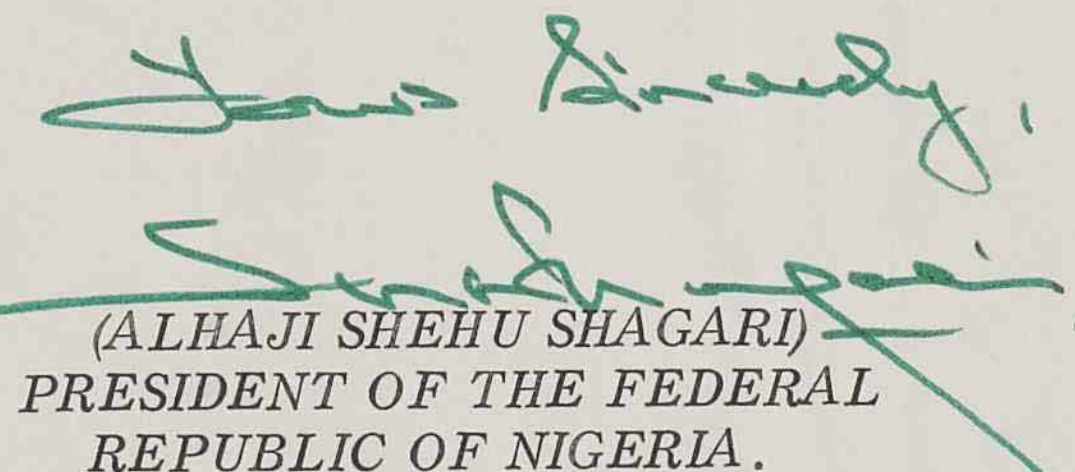 Yours Sincerely,
(ALHAJI SHEHU SHAGARI)
PRESIDENT OF THE FEDERAL
REPUBLIC OF NIGERIA.